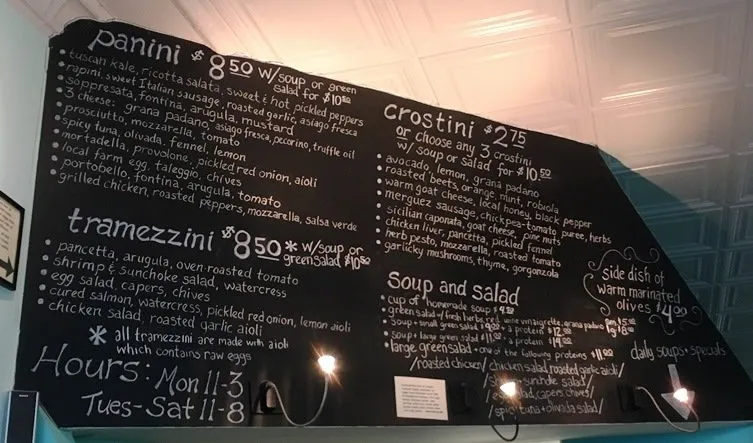 panini $8.50 w/soup or green
salad for $10.50
• tuscan kale, ricotta salata, sweet & hot pickled peppers
• rapini, sweet Italian sausage, roasted garlic, asiago fresca
• soppresata, fontina, arugula, mustard
• 3 cheese: grana padano, asiago fresca, pecorino, truffle oil
• prosciutto, mozzarella, tomato
• spicy tuna, olivada, fennel, lemon
• mortadella, provolone, pickled red onion, aioli
• local farm egg, taleggio, chives
• portobello, fontina, arugula, tomato
• grilled chicken, roasted peppers, mozzarella, salsa verde
tramezzini $8.50 * w/soup or
green salad $10.50
• pancetta, arugula, oven roasted tomato
• shrimp & sunchoke salad, watercress
• egg salad, capers, chives
• cured salmon, watercress, pickled red onion, lemon aioli
• chicken salad, roasted garlic aioli
* all tramezzini are made with aioli
which contains raw eggs
Hours: Mon 11-3
Tues-Sat 11-8
crostini $2.75
or choose any 3 crostini
w/ soup or salad for $10.50
• avocado, lemon, grana padano
• roasted beets, orange, mint, robiola
• warm goat cheese, local honey, black pepper
• merguez sausage, chickpea-tomato puree, herbs
• sicilian caponata, goat cheese, pine nuts
• chicken liver, pancetta, pickled fennel
• herb pesto, mozzarella, roasted tomato
• garlicky mushrooms, thyme, gorgonzola
Soup and Salad
• cup of homemade soup
• green salad w/ fresh herbs, red wine vinaigrette, grana padano
• soup + small green salad + a protein
• soup + large green salad + a protein
• large green salad + one of the following proteins $11.00
/roasted chicken/ chicken salad, roasted garlic aioli/
sunchoke salad/
salad, capers, chives/
/spicy tuna + olivada salad/
side dish of
warm marinated
olives $4.00
daily soups + specials